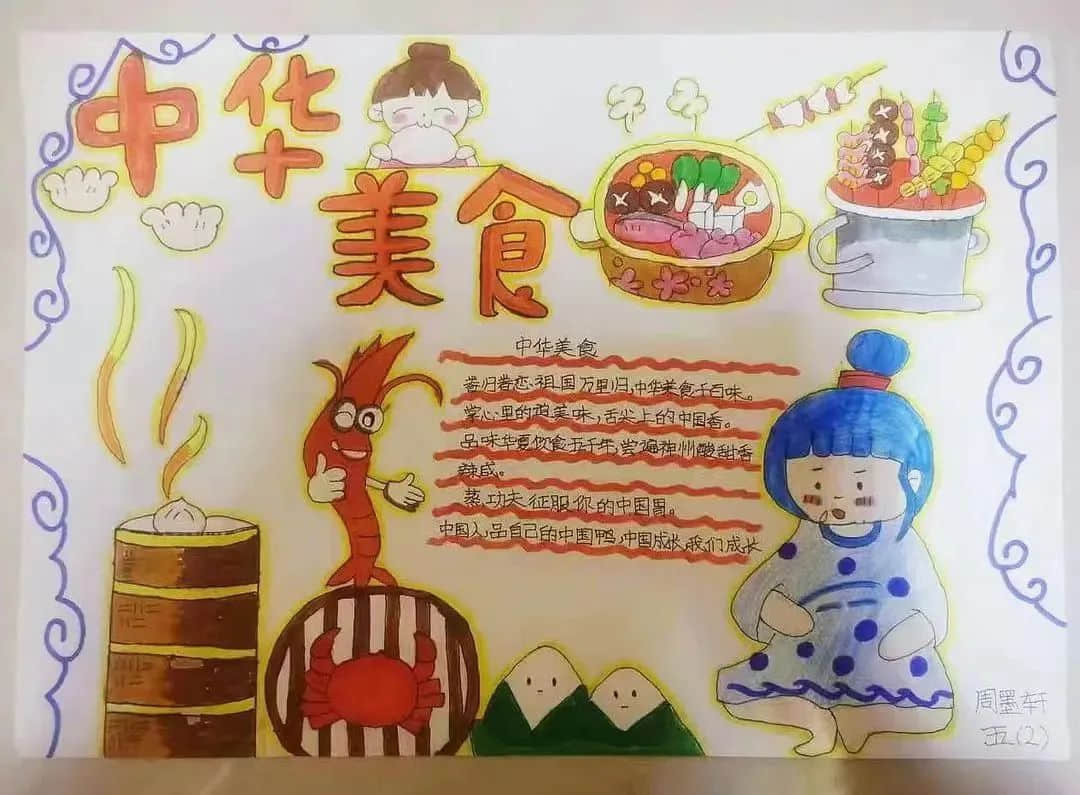 中华
美食
中华美食
眷归眷恋,祖国万里归,中华美食千百味。
掌心里的鸡美味,舌尖上的中国香。
品味华夏饮食五千年,尝遍神州酸甜香
辣咸。
蒸功夫,征服你的中国胃。
中国人,品自己的中国鸭,中国成长,我们成长
周墨轩
五(2)